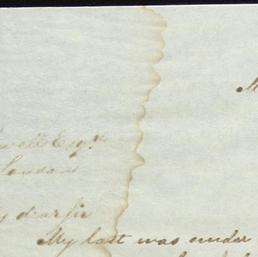 M
well Esqr
London
y dear sir
My last was under